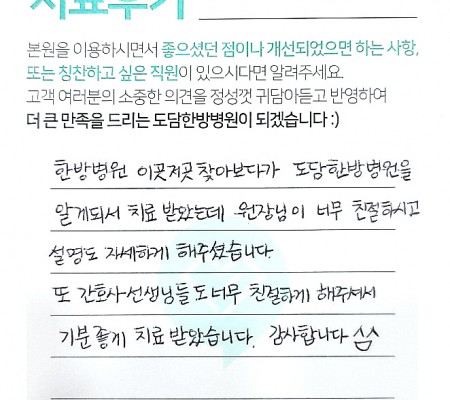 치료후기
본원을 이용하시면서 좋으셨던 점이나 개선되었으면 하는 사항,
또는 칭찬하고 싶은 직원이 있으시다면 알려주세요.
고객 여러분의 소중한 의견을 정성껏 귀담아듣고 반영하여
더 큰 만족을 드리는 도담한방병원이 되겠습니다 :)
한방병원 이곳저곳 찾아보다가 도담한방병원을
알게되서 치료 받았는데 원장님이 너무 친절하시고
설명도 자세하게 해주셨습니다.
또 간호사선생님들도 너무 친절하게 해주셔서
기분좋게 치료 받았습니다. 감사합니다 ^^